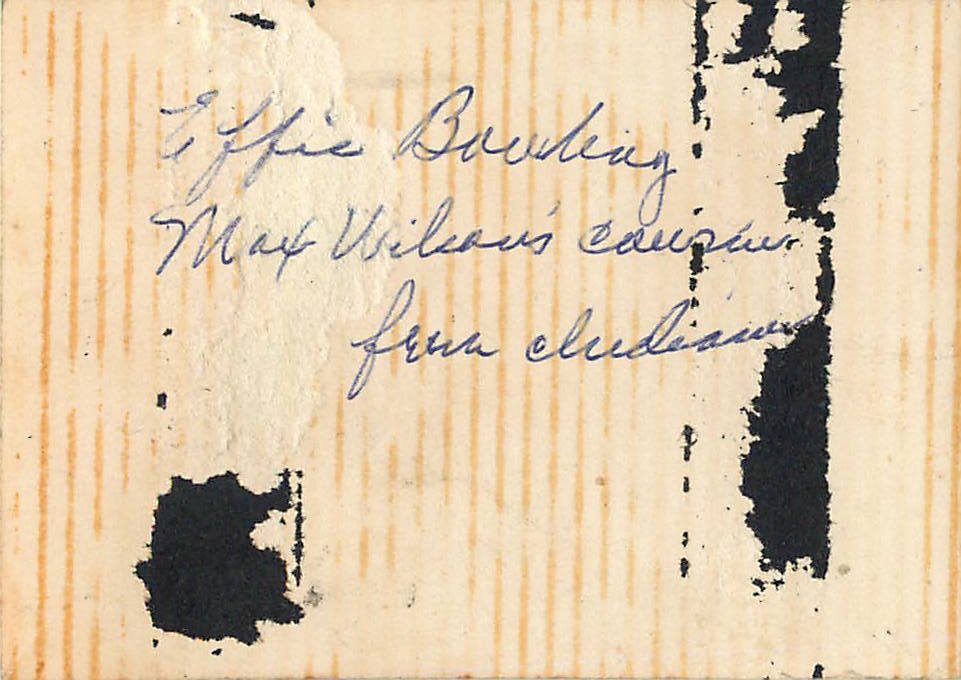 Effie Bowling
Max Wilson's cousin
from Indiana